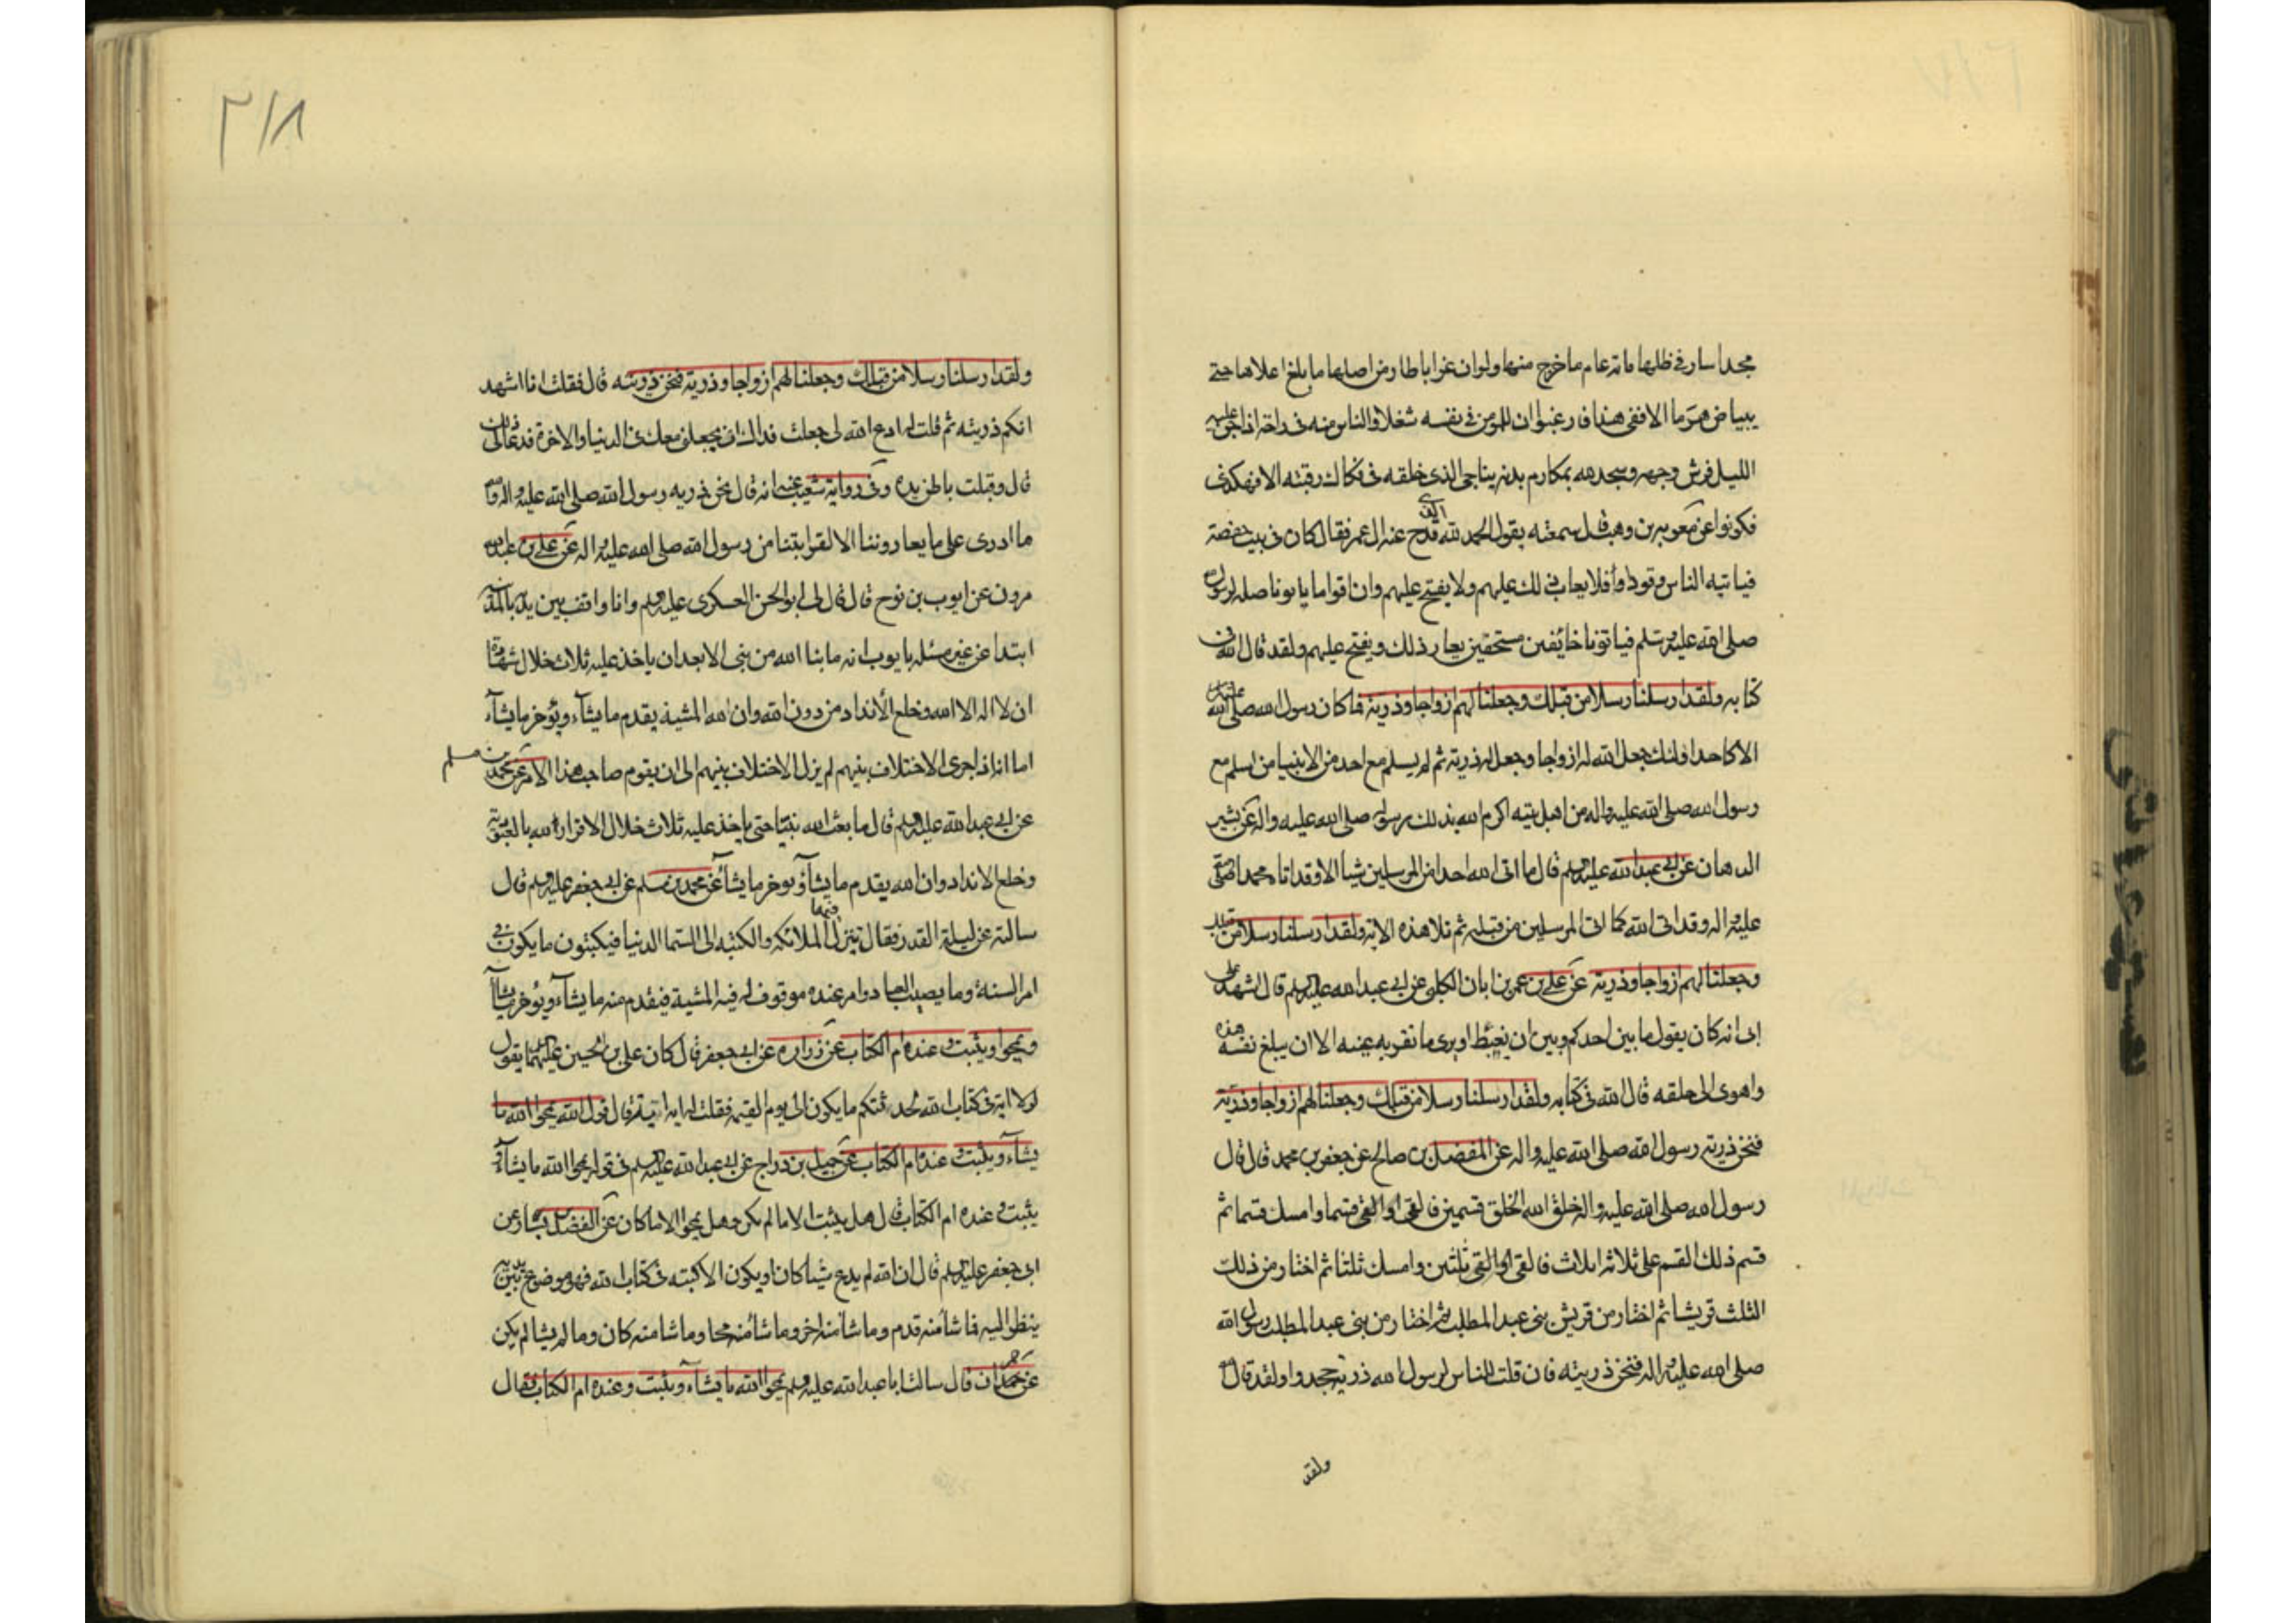 مجدا سار في ظلها مائة عام ما خرج منها ولو ان غرابا طار من اصلها ما بلغ اعلاها حتى
يبياض هرما الا ففى هذا فارغبوا ان للمؤمن في نفسه شغلا والناس منه في راحة اذا جن عليه
الليل فرش وجهه وسجد لله بمكارم بدنه يناجى الذى خلقه في فكاك رقبته الا فهكذى
فكونوا عن معوية بن وهب قال سمعته يقول الحمد لله عند ال عمر فقال كان في بيت حفصة
فياتيه الناس وفودا فلا يعاب ذلك عليهم ولا يقبح عليهم وان اقواما ياتونا صلة لرسول
صلى الله عليه وسلم فياتونا خائفين مستخفين يعاب ذلك ويقبح عليهم ولقد قال الله في
كتابه ولقد ارسلنا رسلا من قبلك وجعلنا لهم ازواجا وذرية فما كان رسول الله صلى الله عليه
الا كاحد اولئك جعل الله له ازواجا وجعل له ذرية ثم لم يسلم مع احد من الانبيا من اسلم مع
رسول الله صلى الله عليه واله من اهل بيته اكرم الله بذلك رسوله صلى الله عليه واله عن بشير
الدهان عن ابى عبد الله عليه السلم قال ما اتى الله احدا من المرسلين شيا الا وقد اتاه محمدا صلى
عليه واله وقد اتى الله كما اتى المرسلين من قبله ثم تلا هذه الاية ولقد ارسلنا رسلا من قبلك
وجعلنا لهم ازواجا وذرية عن على بن عمر بن ابان الكلبى عن ابى عبد الله عليه السلم قال اشهد على
ابى انه كان يقول ما بين احدكم وبين ان يغبط او يرى ما تقر به عينه الا ان يبلغ نفسه هذه
واهوى الى حلقه قال الله في كتابه ولقد ارسلنا رسلا من قبلك وجعلنا لهم ازواجا وذرية
فنحن ذرية رسول الله صلى الله عليه واله عن المفضل بن صالح عن جعفر بن محمد قال قال
رسول الله صلى الله عليه واله خلق الله الخلق قسمين فالقى قسما وامسك قسما ثم
قسم ذلك القسم على ثلاثة اثلاث فالقى ثلثين وامسك ثلثا ثم اختار من ذلك
الثلث قريشا ثم اختار من قريش بنى عبد المطلب ثم اختار من بنى عبد المطلب رسول الله
صلى الله عليه واله فنحن ذريته فان قلت للناس لرسول الله ذرية جحدوا ولقد قال الله
ولقد
٢١٨
ولقد ارسلنا رسلا من قبلك وجعلنا لهم ازواجا وذرية فنحن ذريته قال فقلت انا اشهد
انكم ذريته ثم قلت له ادع الله لى جعلت فداك ان يجعلنى معك في الدنيا والاخرة فدعا لى ذلك
قال وقبلت باطن يده وفى رواية شعيب عنه انه قال نحن ذرية رسول الله صلى الله عليه واله
ما ادرى على ما يعادوننا الا لقرابتنا من رسول الله صلى الله عليه واله عن على بن عبد الله
مرون عن ايوب بن نوح قال قال لى ابو الحسن العسكرى عليه السلم وانا واقف بين يديه بالمدينة
ابتدا عن غير مسئلة يا يوب انه ما نبا الله من نبى الا بعد ان ياخذ عليه ثلاث خلال شهادة
ان لا اله الا الله وخلع الأنداد من دون الله وان لله المشية يقدم ما يشآء ويؤخر ما يشآء
اما انه اذا جرى الاختلاف بينهم لم يزل الاختلاف بينهم الى ان يقوم صاحب هذا الامر عن محمد بن مسلم
عن ابى عبد الله عليه السلم قال ما بعث الله نبيا حتى ياخذ عليه ثلاث خلال الاقرار لله بالعبودية
وخلع الانداد وان الله يقدم ما يشآ ويوخر ما يشآ عن محمد بن مسلم عن ابى جعفر عليه السلم قال
سالته عن ليلة القدر فقال تنزل فيها الملائكه والكتبه الى السما الدنيا فيكتبون ما يكون في
امر السنة وما يصيب العباد وامر عنده موقوف له فيه المشية فيقدم منه ما يشآء ويؤخر ما يشآ
ويمحوا ويثبت وعنده ام الكتاب عن زراره عن ابى جعفر قال كان على بن الحسين عليهما يقول
لولا اية في كتاب الله لحدثتكم ما يكون الى يوم القيمه فقلت له اية اية قال قول الله يمحوا الله ما
يشآء ويثبت وعنده ام الكتاب عن جميل بن دراج عن ابى عبد الله عليه السلم في قوله يمحوا الله ما يشآء و
يثبت وعنده ام الكتاب قال هل يثبت الا ما لم يكن وهل يمحوا الا ما كان عن الفضل بن يسار عن
ابى جعفر عليه السلم قال ان الله لم يدع شيئا كان او يكون الا كتبه في كتاب الله فهو موضوع بين يديه
ينظر اليه فما شآ منه قدم وما شآ منه اخر وما شآ منه محا وما شا منه كان وما لم يشا لم يكن
عن حمران قال سالت ابا عبد الله عليه السلم يمحوا الله ما يشآء ويثبت وعنده ام الكتاب فقال